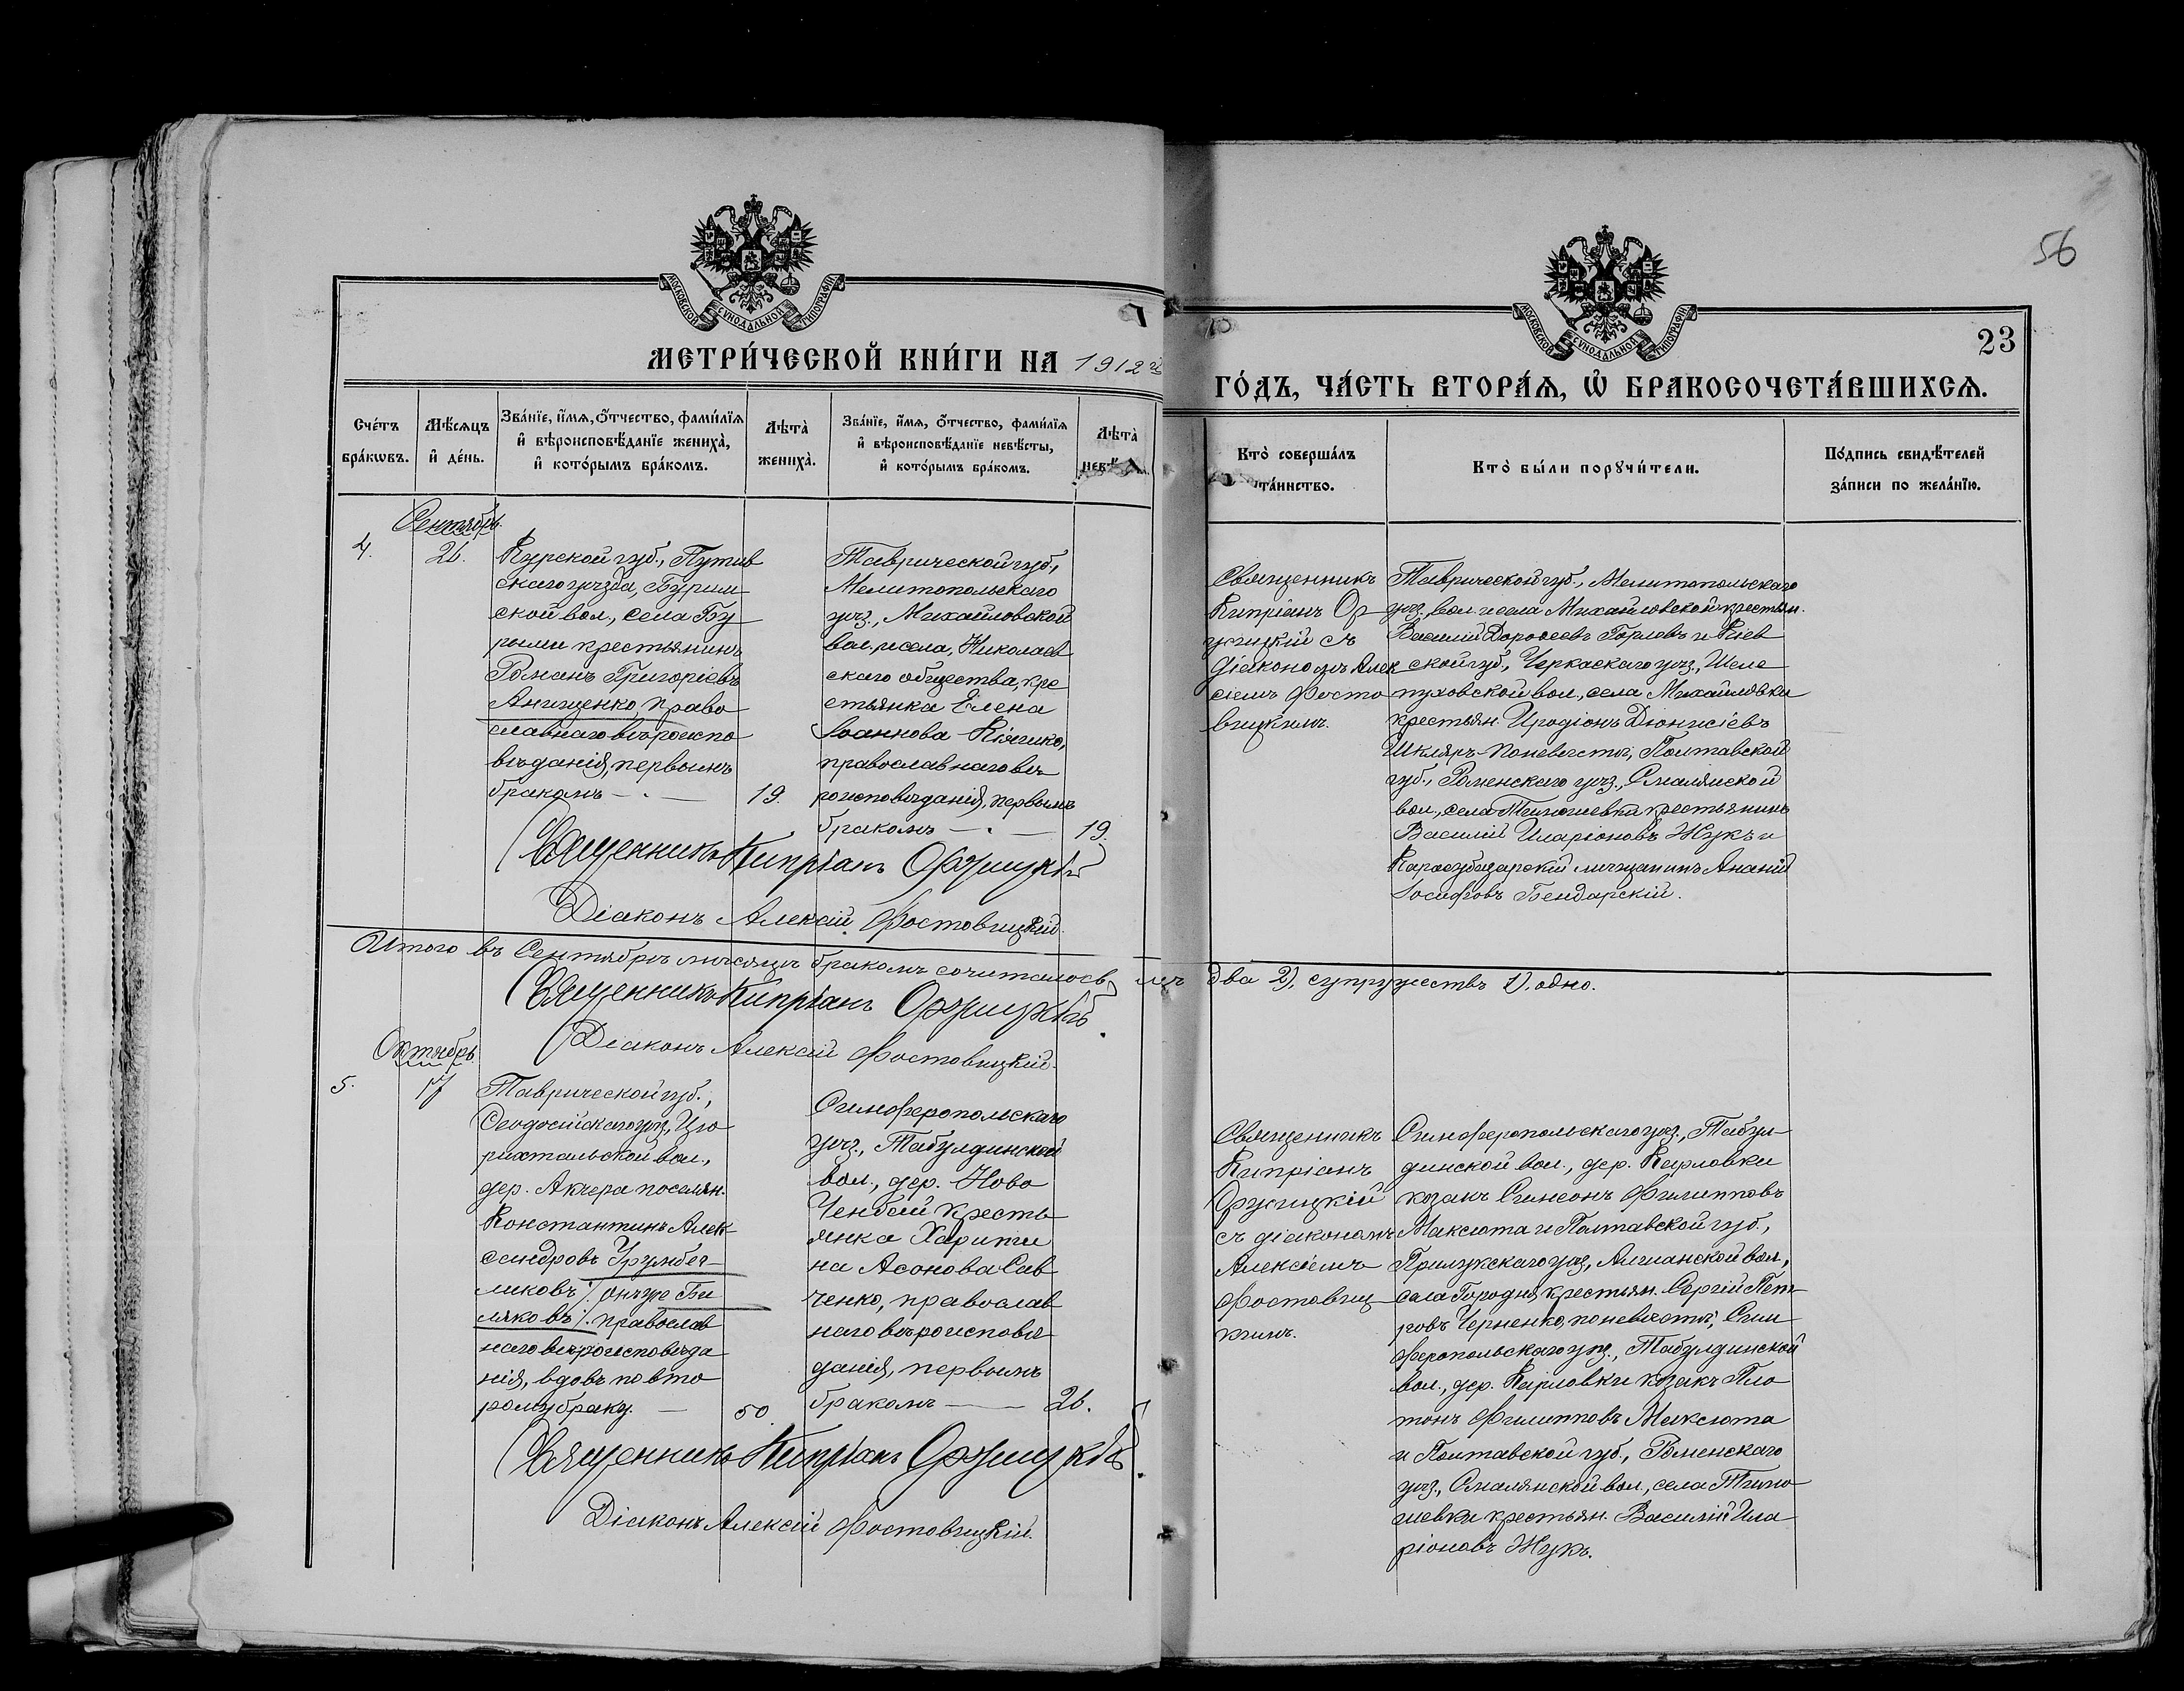 56
МОСКОВСКОЙ СУНОДАЛЬНОЙ ТИПОГРАФІИ
МОСКОВСКОЙ СУНОДАЛЬНОЙ ТИПОГРАФІИ
23
МЕТРИ́ЧЕСКОЙ КНИ́ГИ НА 1912 й
ГО́ДЪ, ЧА́СТЬ ВТОРА́Я, Ѡ БРАКОСОЧЕТА́ВШИХСЯ.
Сче́тъ
бра́кѡвъ.
Мѣ́сяцъ
и҆ де́нь.
Зва́нїе, и҆́мя, ѻ҆́тчество, фами́лїя
и҆ вѣроисповѣ́данїе жениха̀,
и҆ кото́рымъ бра́комъ.
Лѣ́та̀
жениха̀.
Зва́нїе, и҆́мя, ѻ҆́тчество, фами́лїя
и҆ вѣроисповѣ́данїе невѣ́сты,
и҆ кото́рымъ бра́комъ.
Лѣ́та̀
невѣ́
Кто̀ соверша́лъ
та́инство.
Кто̀ бы́ли порꙋчи́тели.
По́дпись свидѣ́телей
за́писи по жела́нїю.
Сентябрь.
4.
26.
Курской губ., Путив
скаго уѣзда, Бурин
ской вол., села Бу
рыни крестьянинъ
Романъ Григоріевъ
Анищенко, право
славнаго вѣроиспо
вѣданія, первымъ
бракомъ —
19.
Таврической губ.,
Мелитопольскаго
уѣз., Михайловской
вол. и села, Николаев
скаго общества, кре
стьянка Елена
Іоаннова Кіяшко,
православнаго вѣ
роисповѣданія, первымъ
бракомъ —
19.
Священникъ
Кипріанъ Ор
жицкій съ
діакономъ Алек
сіемъ Фосто
вицкимъ.
Таврической губ., Мелитопольскаго
уѣз. вол. и села Михайловской крестьян.
Василій Дороѳеевъ Горловъ и Кіев
ской губ., Черкаскаго уѣз., Шеле
пуховской вол., села Михайловки
крестьян. Иродіонъ Діонисіевъ
Шкляръ. По невѣстѣ, Полтавской
губ., Роменскаго уѣз., Смалянской
вол., села крестьянинъ
Василій Иларіоновъ Жукъ и
Карасубазарскій мѣщанинъ Ананій
Іосифовъ Бендарскій.
Священникъ Кипріанъ Оржицкій
Діаконъ Алексій Фостовицкій.
Итого въ Сентябрѣ мѣсяцѣ бракомъ сочеталось мч два 2), супружествъ 1), одно.
Священникъ Кипріанъ Оржицкій
Діаконъ Алексій Фостовицкій.
Октябрь.
5.
17
Таврической губ.,
Ѳеодосійскаго уѣз., Цю
рихтальской вол.,
дер. Акчера поселян.
Константинъ Алек
сандровъ
онъ же Би
ляковъ/. православ
наго вѣроисповѣда
нія, вдовъ по вто
рому браку. —
50.
Симферопольскаго
уѣз., Табулдинской
вол., дер. Ново
Ченбай кресть
янка Харити
на Асонова Сав
ченко, православ
наго вѣроисповѣ
данія, первымъ
бракомъ —
26.
Священникъ
Кипріанъ
Оржицкій
съ діакономъ
Алексіемъ
Фостовиц
кимъ.
Симферопольскаго уѣз., Табул
динской вол., дер. Карловки
козакъ Симеонъ Филипповъ
Максюта и Полтавской губ.,
Прилукскаго уѣз., вол.,
села Городня крестьян. Сергій Пет
ровъ Черненко, по невѣстѣ, Сим
феропольскаго уѣз., Табулдинской
вол., дер. Карловки козакъ Пла
тонъ Филипповъ Максюта
и Полтавской губ., Роменскаго
уѣз., Смалянской вол., села
крестьян. Василій Ила
ріоновъ Жукъ.
Священникъ Кипріанъ Оржицкій
Діаконъ Алексій Фостовицкій.